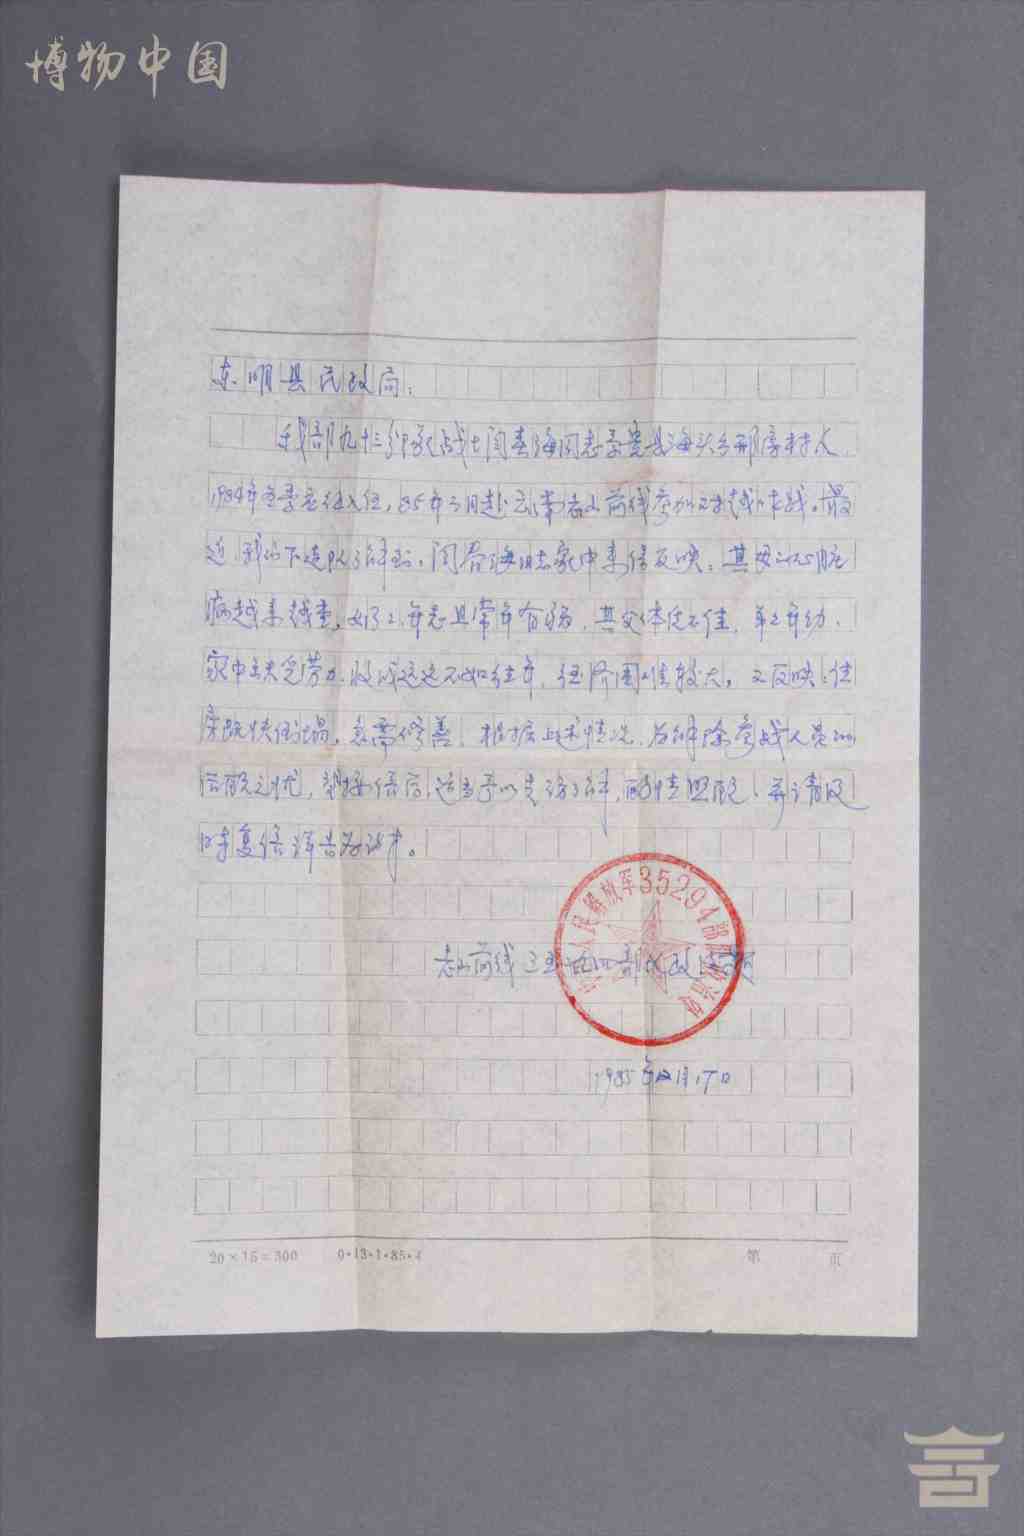 博物中国
东明县民政局：
我部九十三分队战士闫春海同志系贵县海头乡邢庄村人，
1984年冬季应征入伍，85年3月赴云南老山前线参加对越作战。最
近，我们下连队了解到，闫春海同志家中来信反映：其母心脏
病越来越重，奶奶年老且常年有病，其父体况不佳，弟弟年幼，
家中缺乏劳力，收成远远不如往年，经济困难较大，又反映：住
房既快倒塌，急需修善，根据上述情况，为解除参战人员的
后顾之忧，望接信后，适当予以走访了解，酌情照顾，并请及
时复信详告为盼。
老山前线三五二九四部队政治处
中国人民解放军35294部队政治处
1985年12月17日
20×15=300 0·13·1·85·4 第 页